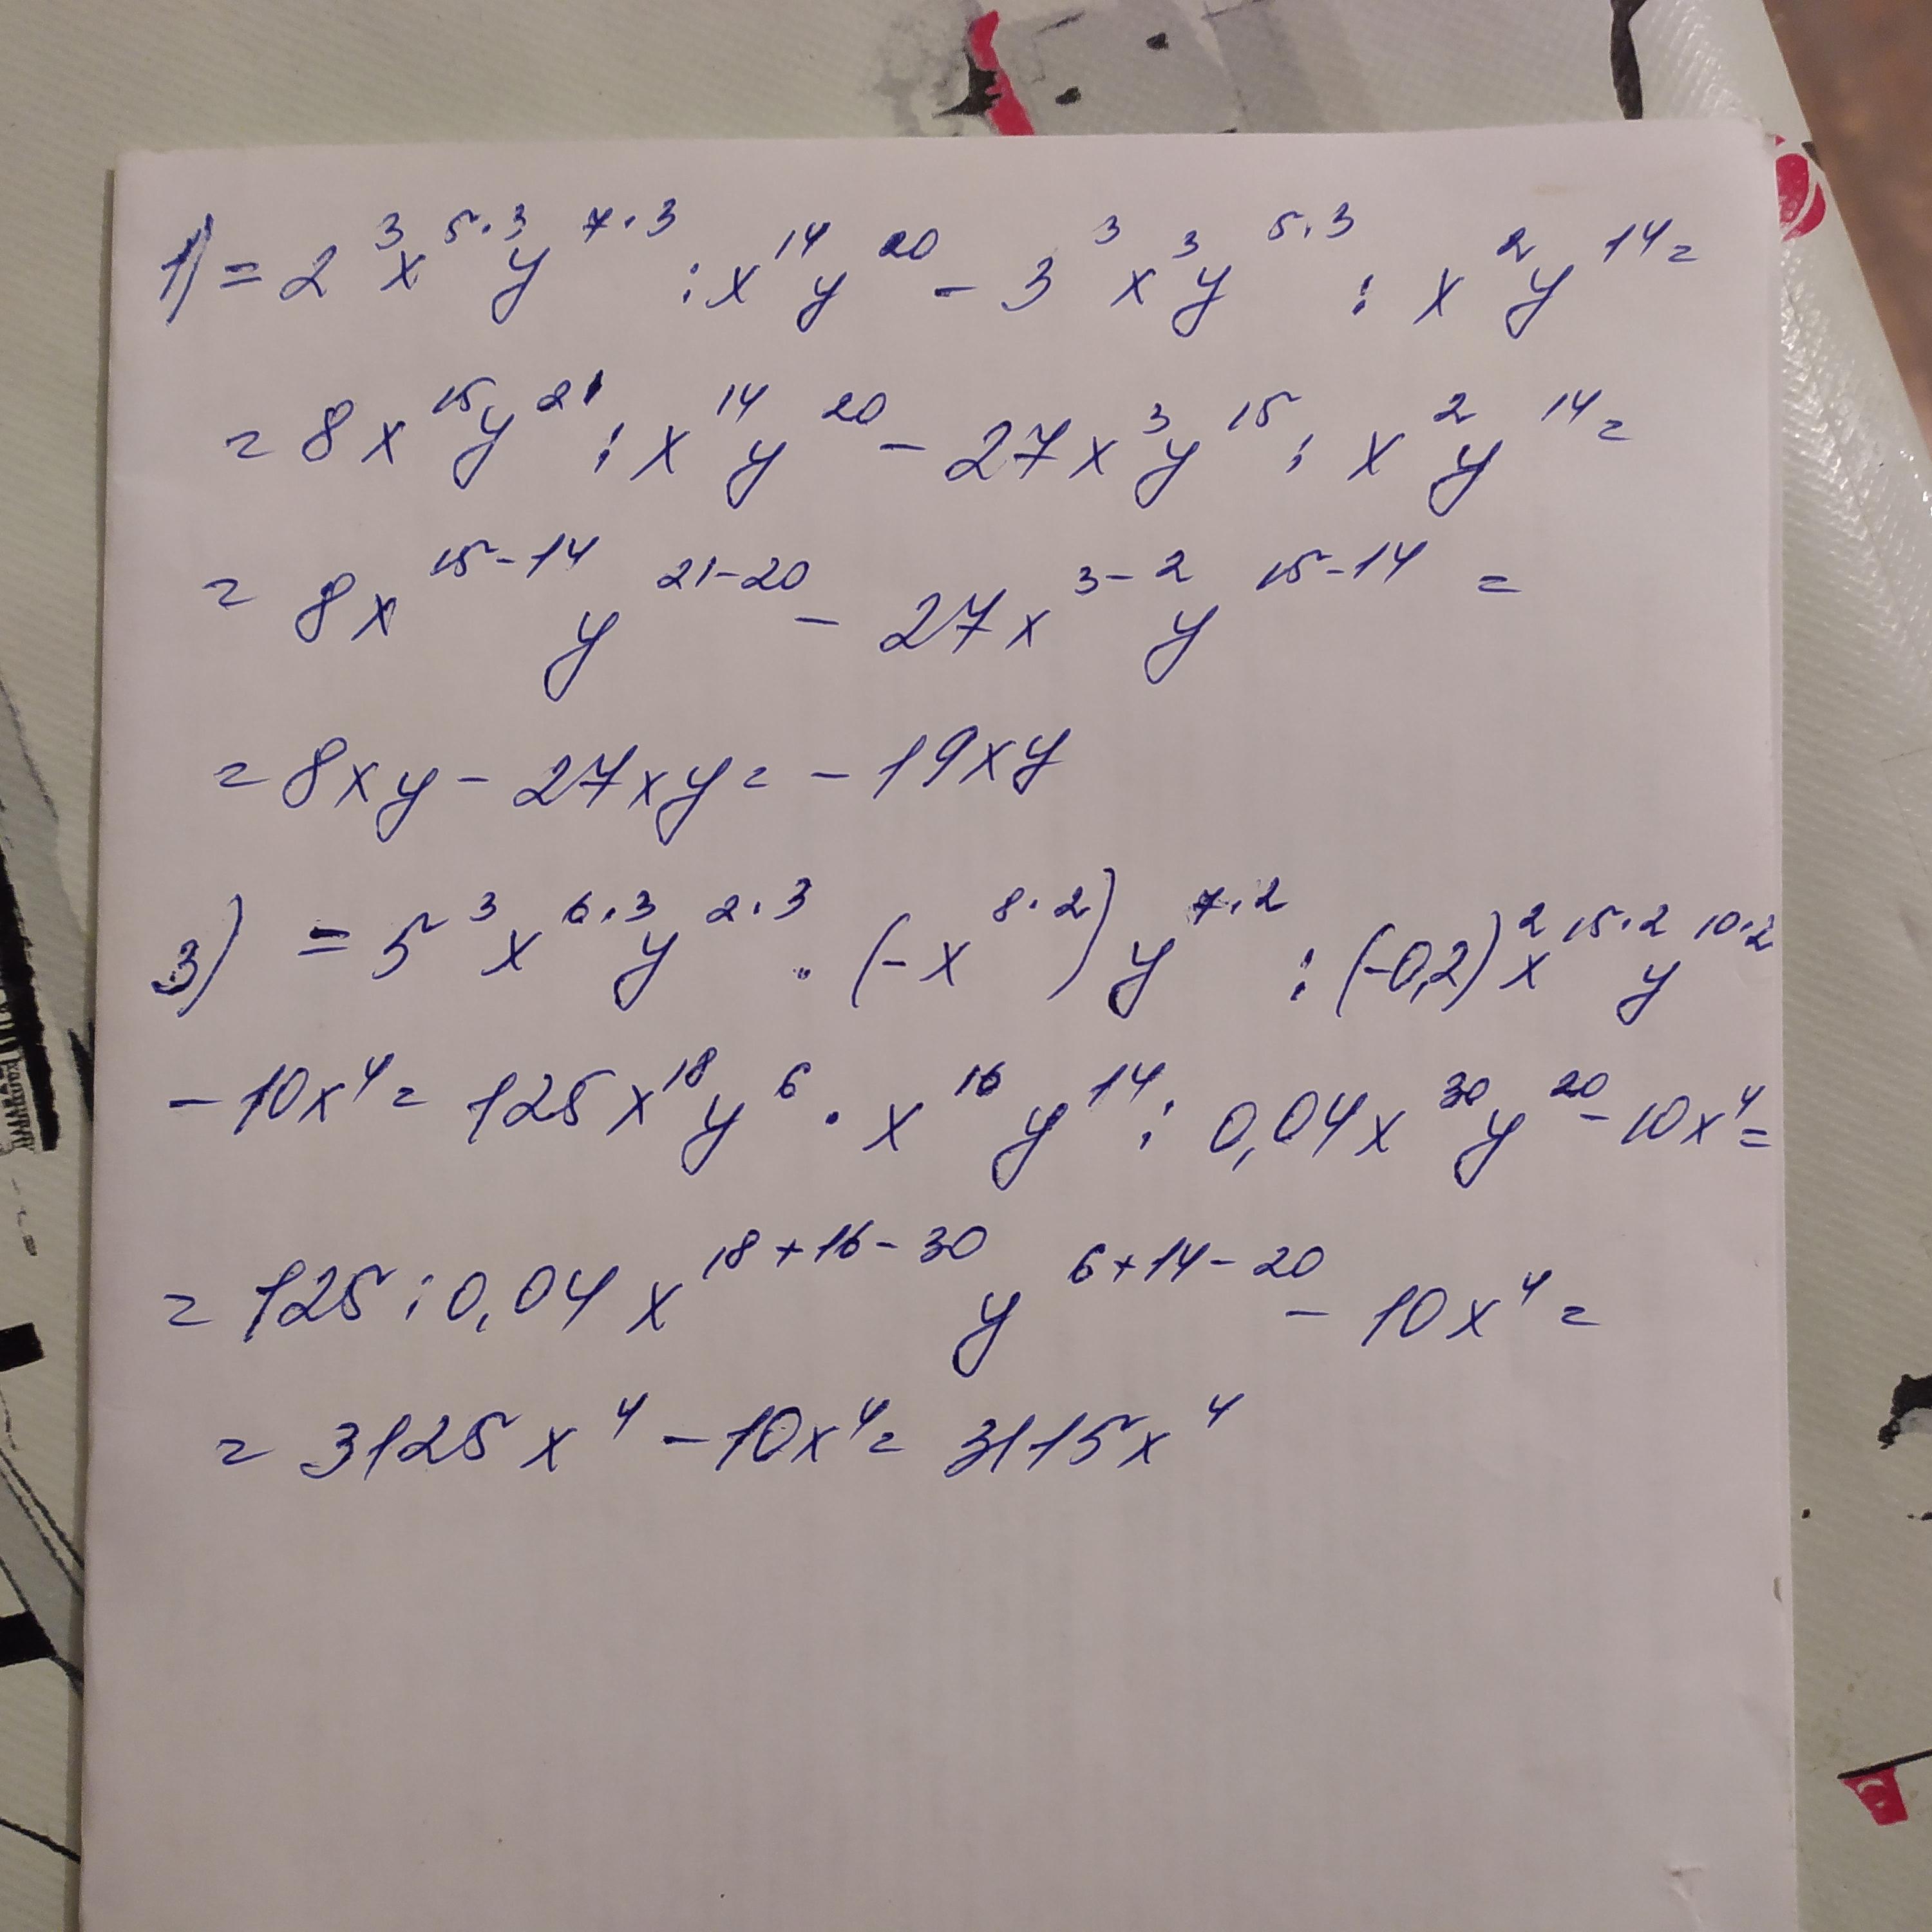 1) = 2³x⁵·³y⁷·³ : x¹⁴y²⁰ - 3³x³y⁵·³ : x²y¹⁴ =
= 8x¹⁵y²¹ : x¹⁴y²⁰ - 27x³y¹⁵ : x²y¹⁴ =
= 8x¹⁵⁻¹⁴y²¹⁻²⁰ - 27x³⁻²y¹⁵⁻¹⁴ =
= 8xy - 27xy = - 19xy
3) = 5³x⁶·³y²·³ · (-x⁸·²)y⁷·² : (-0,2)²x¹⁵·²y¹⁰·²
- 10x⁴ = 125x¹⁸y⁶ · x¹⁶y¹⁴ : 0,04x³⁰y²⁰ - 10x⁴ =
= 125 : 0,04x¹⁸⁺¹⁶⁻³⁰y⁶⁺¹⁴⁻²⁰ - 10x⁴ =
= 3125x⁴ - 10x⁴ = 3115x⁴